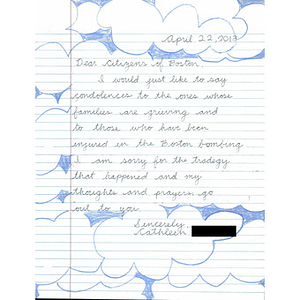 April 22, 2013
Dear Citizens of Boston,
I would just like to say
condolences to the ones whose
families are grieving and
to those who have been
injured in the Boston bombing
I am sorry for the tradegy
that happened and my
thoughts and prayers go
out to you.
Sincerely,
Cathleen